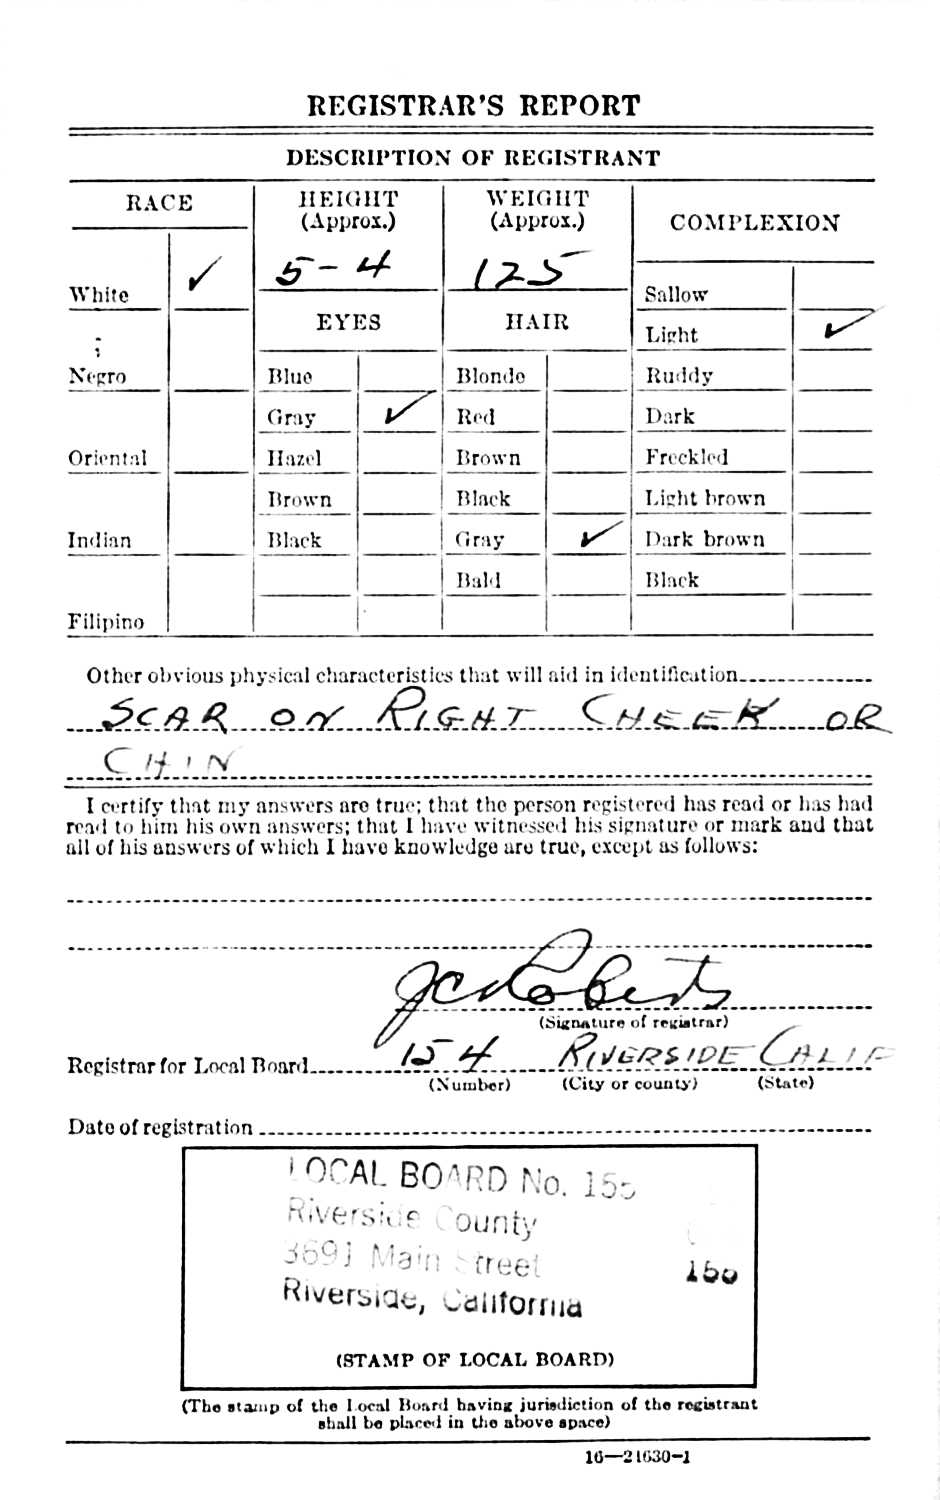 REGISTRAR'S REPORT
DESCRIPTION OF REGISTRANT
RACE
HEIGHT
(Approx.)
WEIGHT
(Approx.)
COMPLEXION
White ✓
5-4
125
Sallow
EYES
HAIR
Light ✓
Negro
Blue
Blonde
Ruddy
Gray ✓
Red
Dark
Oriental
Hazel
Brown
Freckled
Brown
Black
Light brown
Indian
Black
Gray ✓
Dark brown
Bald
Black
Filipino
Other obvious physical characteristics that will aid in identification
SCAR ON RIGHT CHEEK OR
CHIN
I certify that my answers are true; that the person registered has read or has had
read to him his own answers; that I have witnessed his signature or mark and that
all of his answers of which I have knowledge are true, except as follows:
JC Roberts
(Signature of registrar)
Registrar for Local Board 154 RIVERSIDE CALIF
(Number) (City or county) (State)
Date of registration
LOCAL BOARD No. 155
Riverside County
3691 Main Street
155
Riverside, California
(STAMP OF LOCAL BOARD)
(The stamp of the Local Board having jurisdiction of the registrant
shall be placed in the above space)
16—21630-1